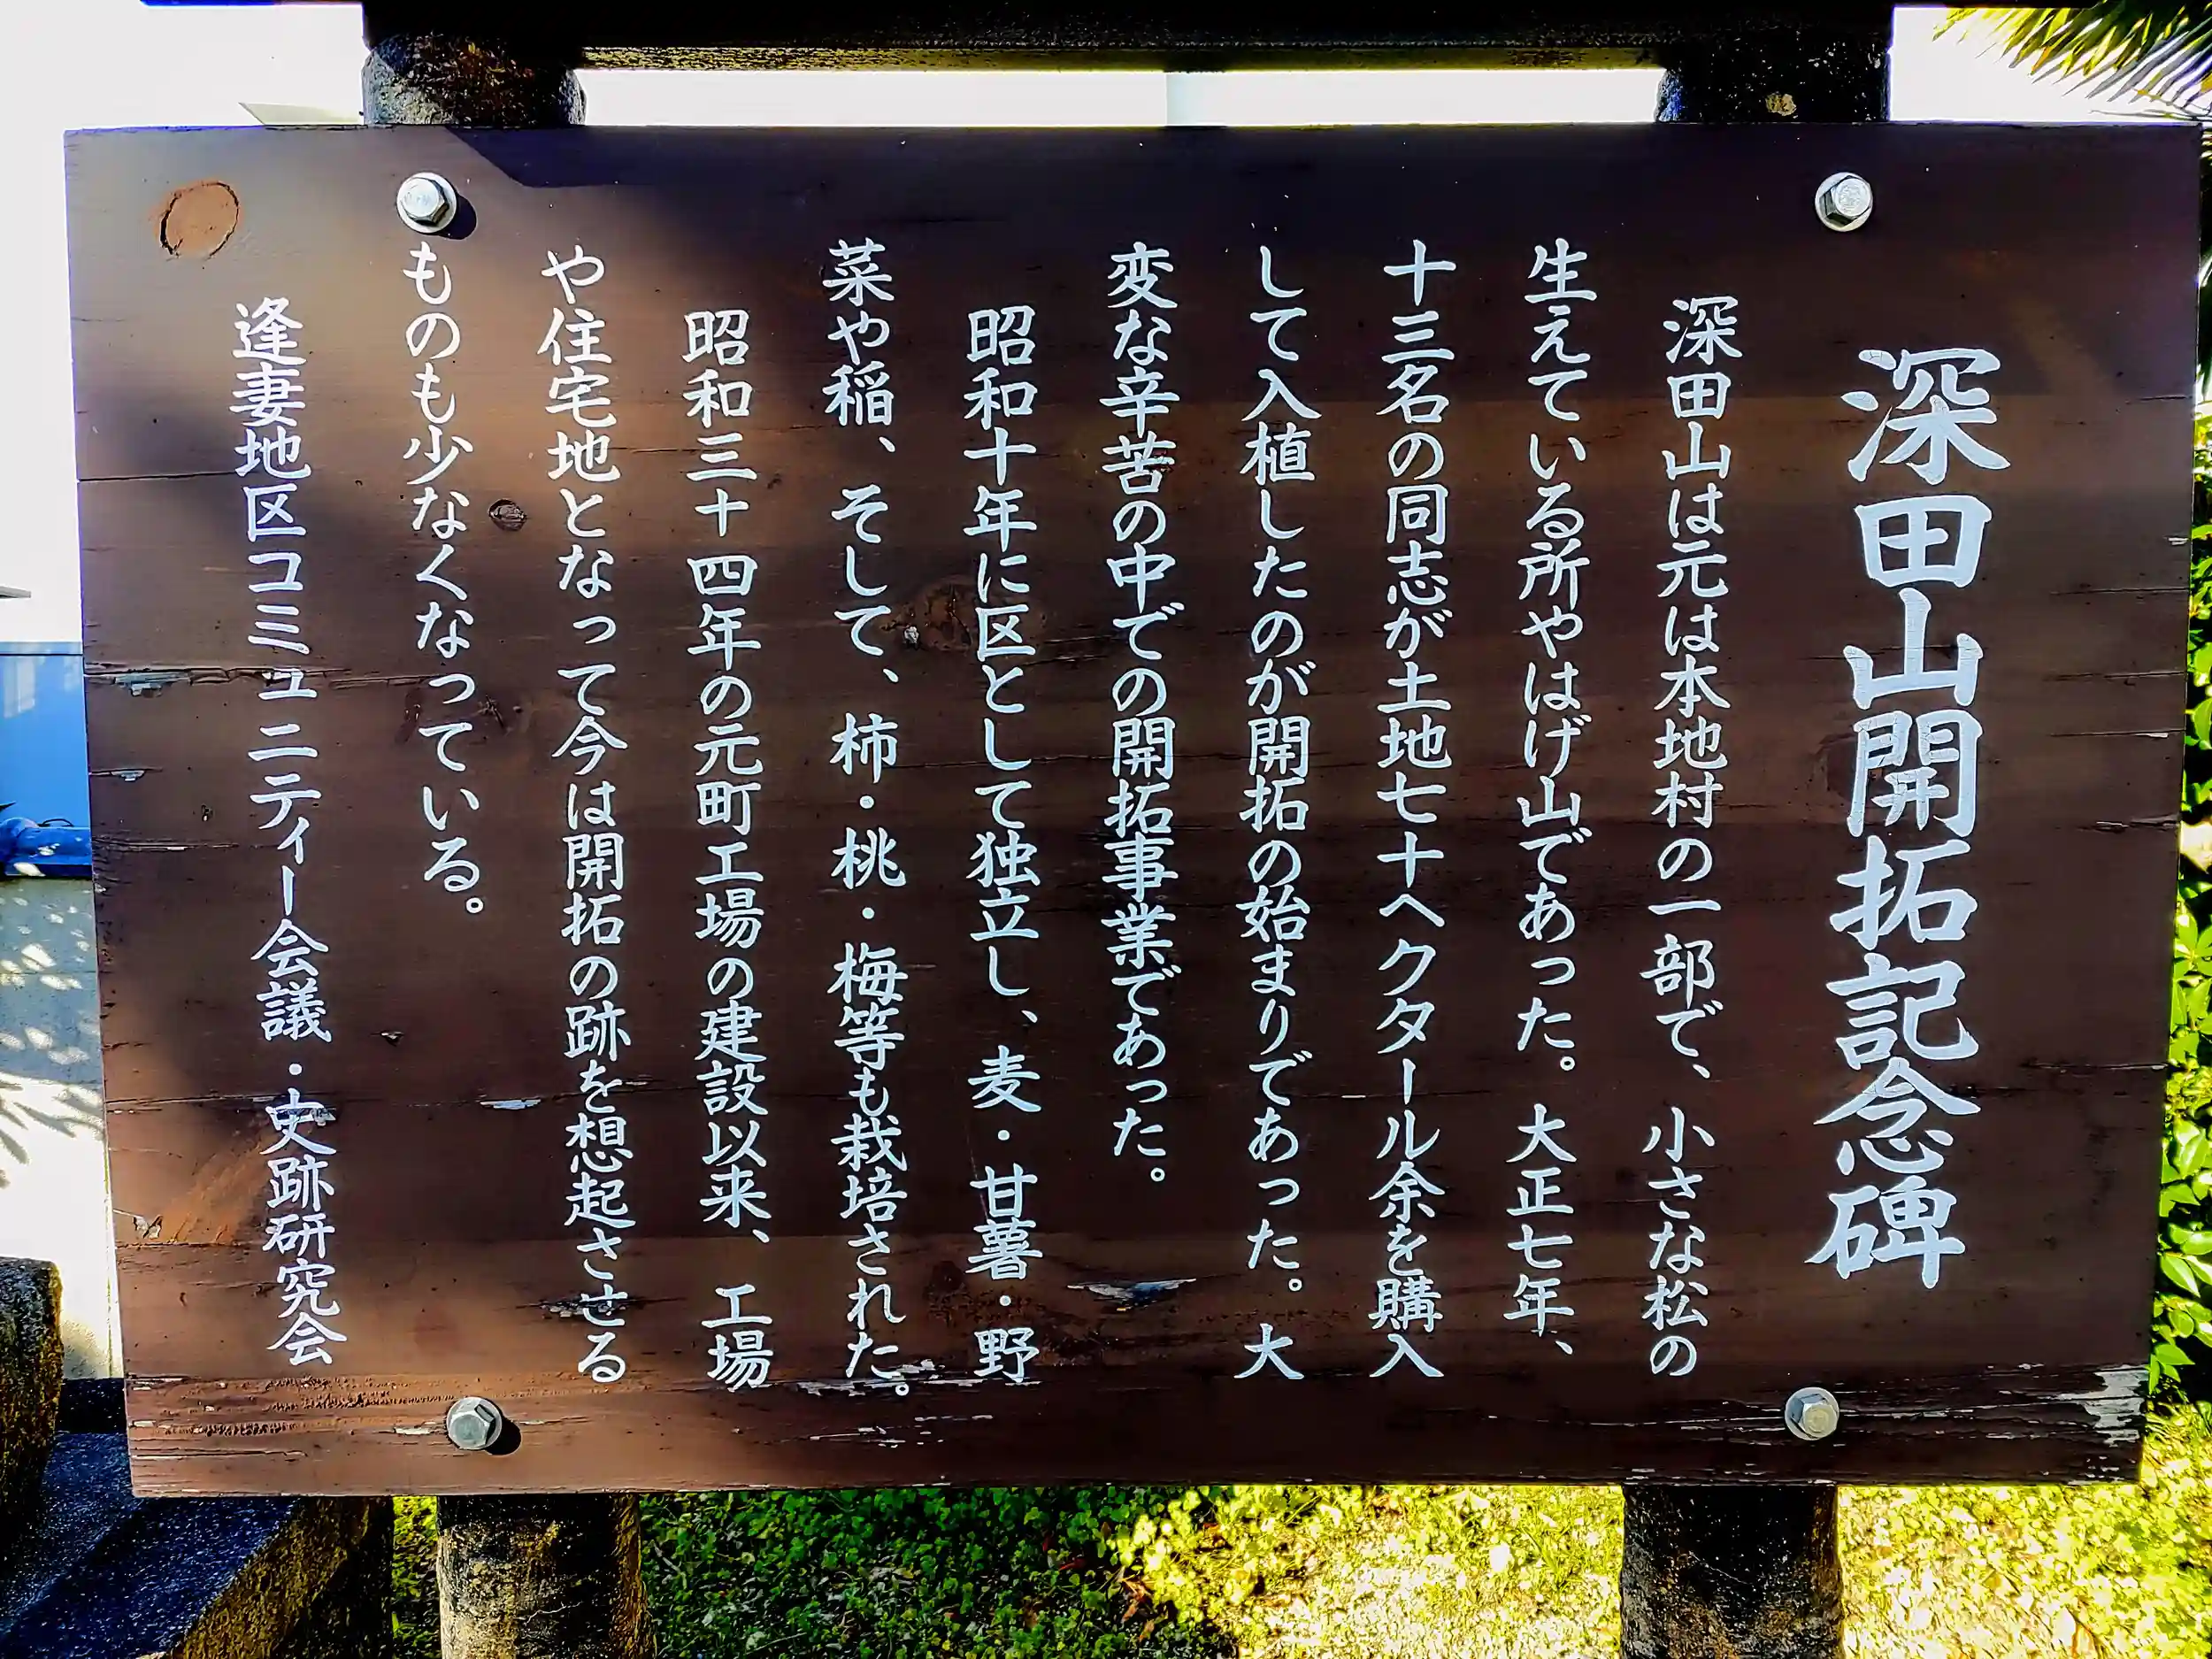 深田山開拓記念碑
深田山は元は本地村の一部で、小さな松の
生えている所やはげ山であった。大正七年、
十三名の同志が土地七十ヘクタール余を購入
して入植したのが開拓の始まりであった。大
変な辛苦の中での開拓事業であった。
昭和十年に区として独立し、麦・甘薯・野
菜や稲、そして、柿・桃・梅等も栽培された。
昭和三十四年の元町工場の建設以来、工場
や住宅地となって今は開拓の跡を想起させる
ものも少なくなっている。
逢妻地区コミュニティー会議・史跡研究会